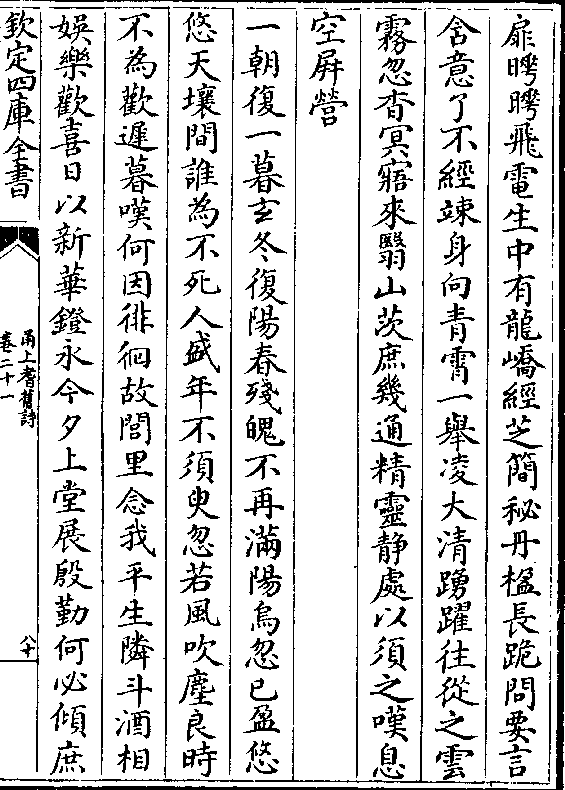 扉騁騁飛電生中有龍嶠經芝簡秘丹楹長跪問要言
含意了不經竦身向青霄一舉凌大清踴躍往從之雲
霧忽杳冥寤來翳山茨庶幾通精靈静處以須之嘆息
空屏營
一朝復一暮玄冬復陽春殘魄不再滿陽烏忽已盈悠
悠天壤間誰為不死人盛年不須臾忽若風吹塵良時
不為歡遲暮嘆何因徘徊故閭里念我平生隣斗酒相
娛樂歡喜日以新華鐙永今夕上堂展殷勤何必傾庶
欽定四庫全書
甬上耆舊詩
卷二十一
八十